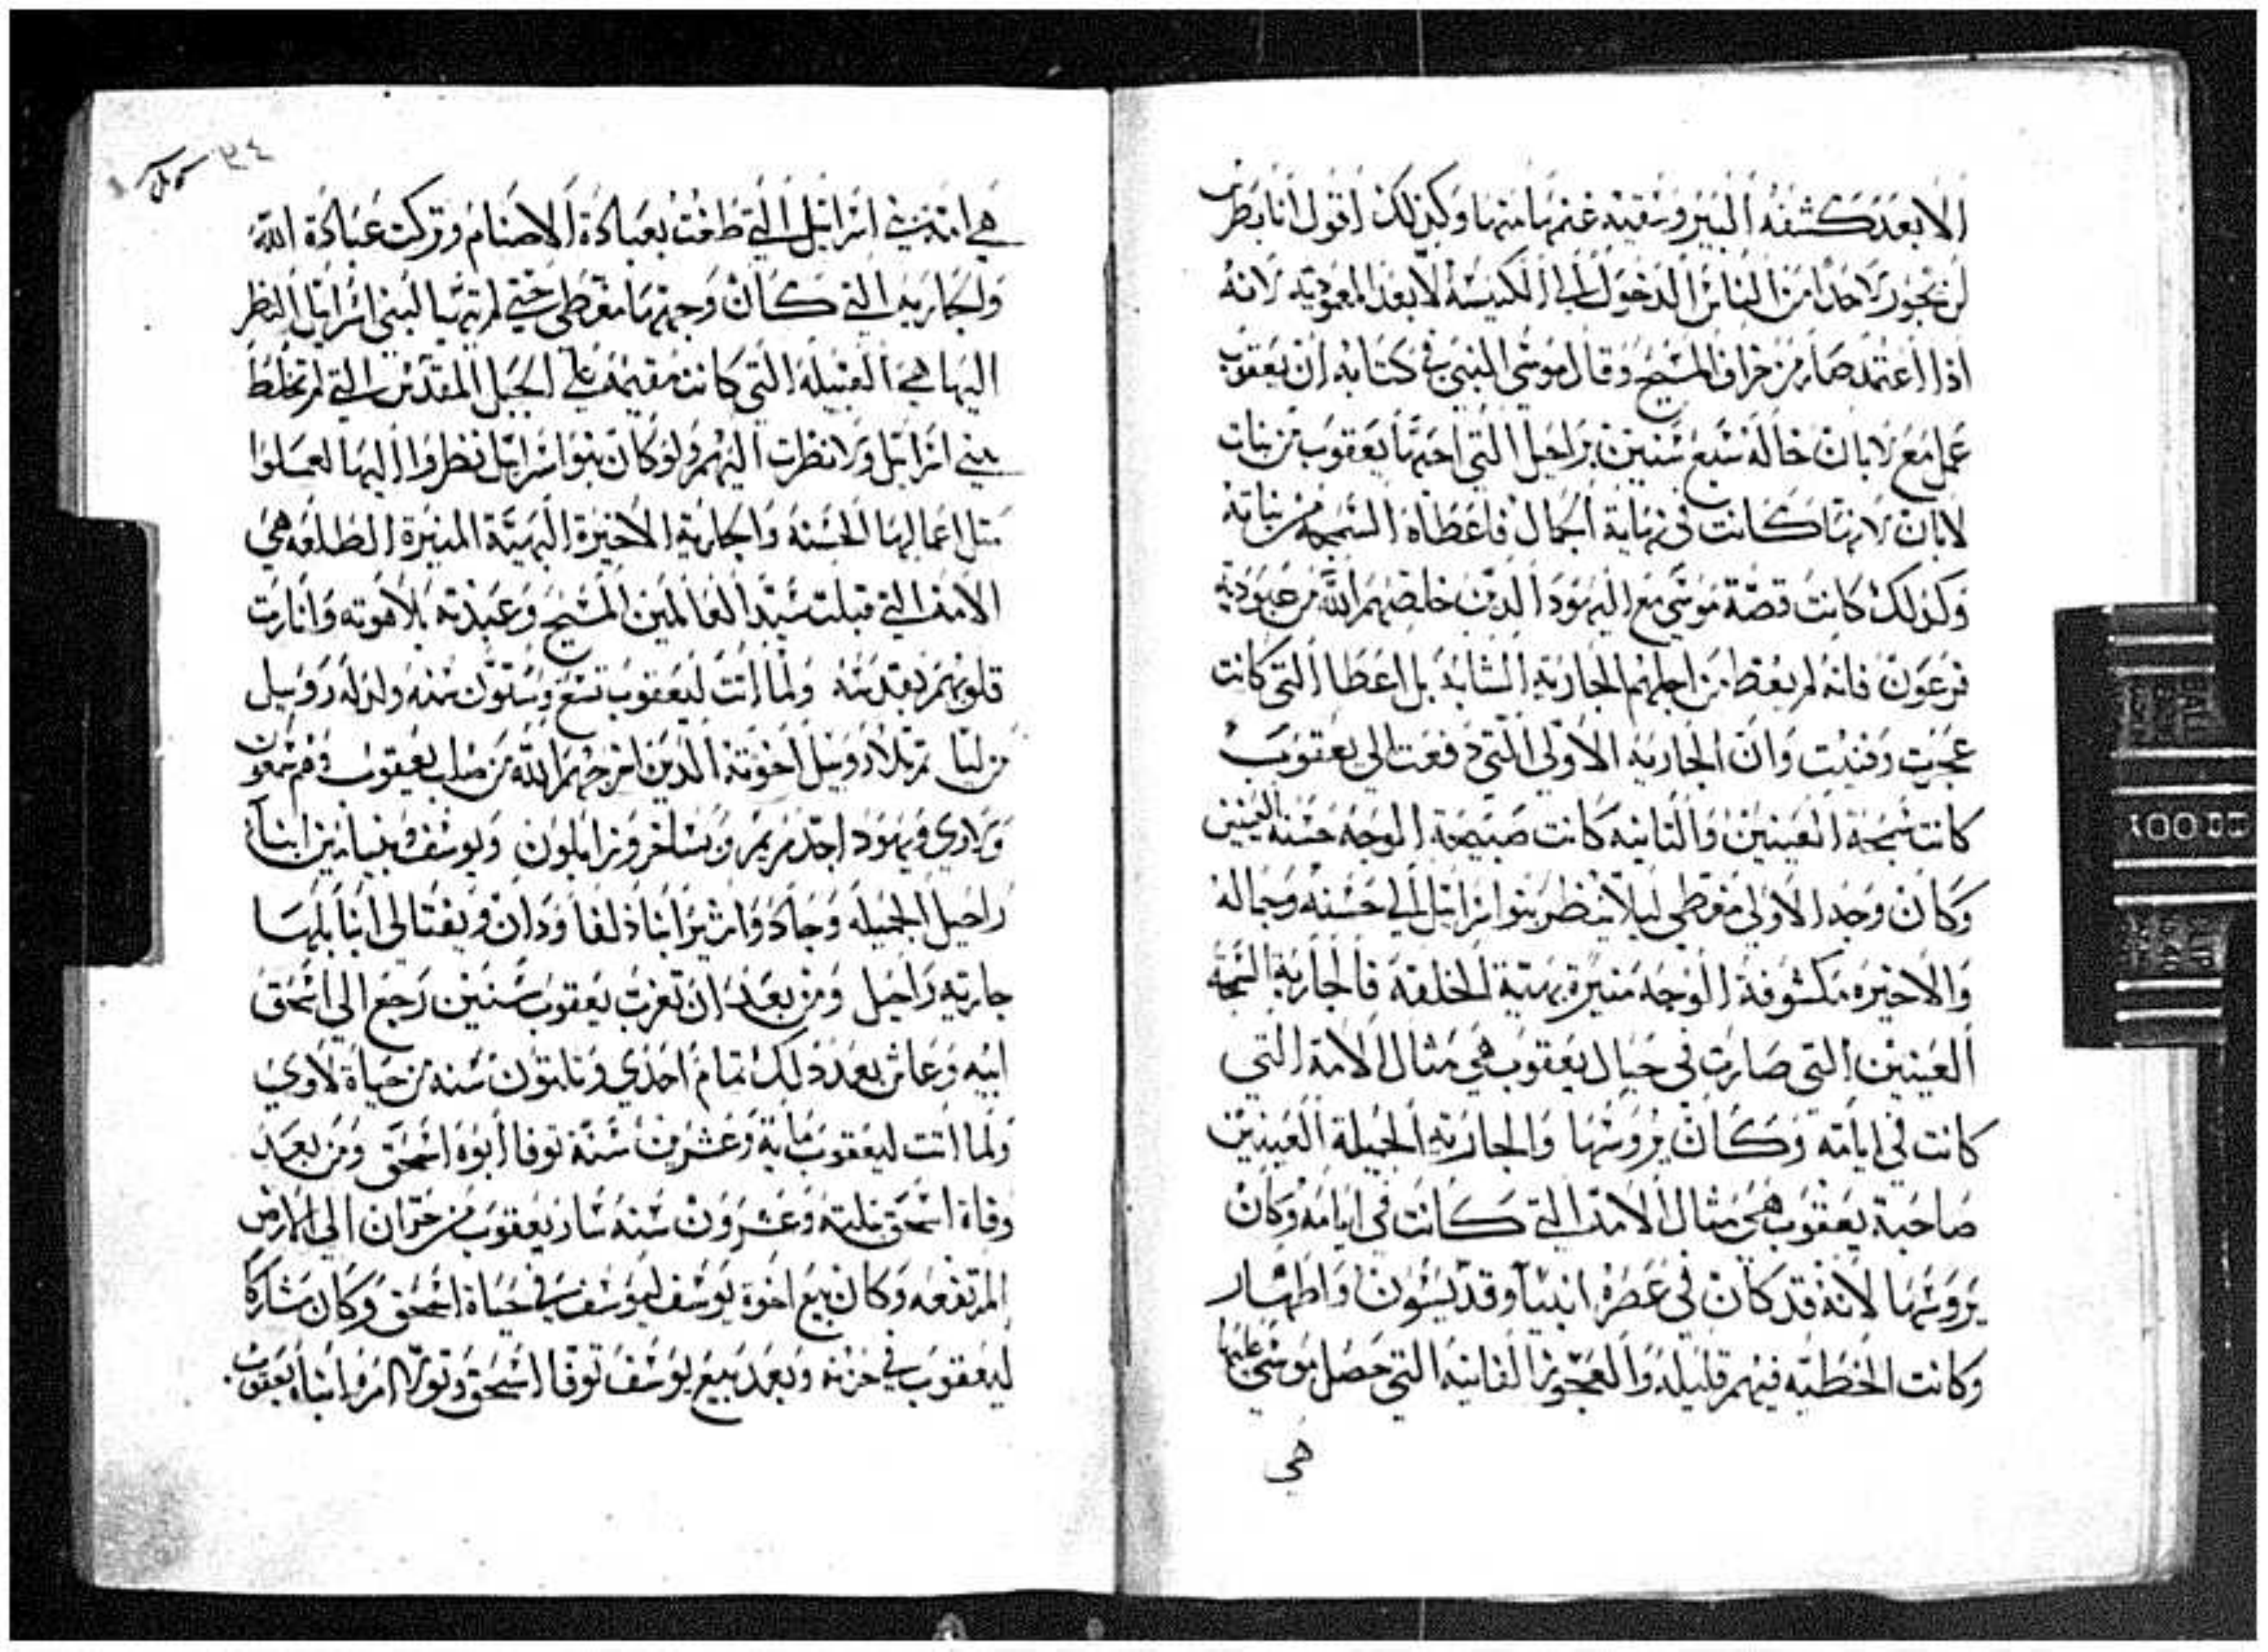 الا بعد كشفه البير وسقيه غنمها منها وكذلك اقول انا بطرس
لن يجوز لاحدا من الناس الدخول الي الكنيسة الا بعد المعموديه لانه
اذا اعتمد صار من خراف المسيح وقال موسى النبي في كتابه ان يعقوب
عمل مع لابان خاله سبع سنين براحيل التي احبها يعقوب من بنات
لابان لانها كانت في نهاية الجمال فاعطاه السمجه من بناته
وكذلك كانت قصة موسي مع اليهود الدين خلصهم الله من عبودية
فرعون فانه لم يعط من اجلهم الجارية الشابه بل اعطا التي كانت
عجزت وفنيت وان الجاريه الاولى التي دفعت الي يعقوب
كانت سمجة العينين والثانيه كانت صبيحة الوجه حسنة العينين
وكان وجه الاولي مغطي ليلا ينظر بنوا اسرائيل الي حسنه وجماله
والاخيره مكشوفة الوجه منيرة بهية الخلقة فالجارية السمجة
العينين التي صارت في حبال يعقوب هي مثال الامة التي
كانت في ايامه وكان يروسها والجاريه الجميلة العينين
صاحبة يعقوب هي مثال الامة التي كانت في ايامه وكان
يروسها لانه قد كان في عصره انبيآ وقديسون واطهار
وكانت الخطيه فيهم قليله والعجوز الفانيه التي حصل موسي عليها
هي
٣٤
هي امة بني اسرائيل التي طغت بعبادة الاصنام وتركت عبادة الله
والجاريه التي كان وجهها مغطي حتي لم يتهيا لبني اسرائيل النظر
اليها هي القبيله التي كانت مقيمة في الجبل المقدس التي لم تخلط
بني اسرائيل ولا نظرت اليهم ولو كان بنوا اسرائيل نظروا اليها لعملوا
مثل اعمالها الحسنه والجارية الاخيرة البهية المنيرة الطلعه هي
الامة التي قبلت سيد العالمين المسيح وعبدته بلاهوته وانارت
قلوبهم بقدسه ولما اتت ليعقوب تسع وستون سنه ولد له روبيل
من ليا ثم تلا روبيل اخوته الدين اخرجهم الله من صلب يعقوب وهم شمعون
ولاوي ويهودا جد مريم ويساخر وزابلون ويوسف وبنيامين ابنآ
راحيل الجميله وجاد واشير ابنا ذلفا ودان ونفتالي ابنا بلها
جارية راحيل ومن بعد ان تغرب يعقوب سنين رجع الي اسحق
ابيه وعاش بعد ذلك تمام احدي وثلثون سنه من حياة لاوي
ولما اتت ليعقوب ماية وعشرين سنة توفا ابوه اسحق ومن بعد
وفاة اسحق بثلثه وعشرون سنه سار يعقوب من حران الي الارض
المرتفعه وكان بيع اخوة يوسف ليوسف في حياة اسحق وكان مشاركا
ليعقوب في حزنه وبعد بيع يوسف توفا اسحق وتولا امره ابناه يعقوب